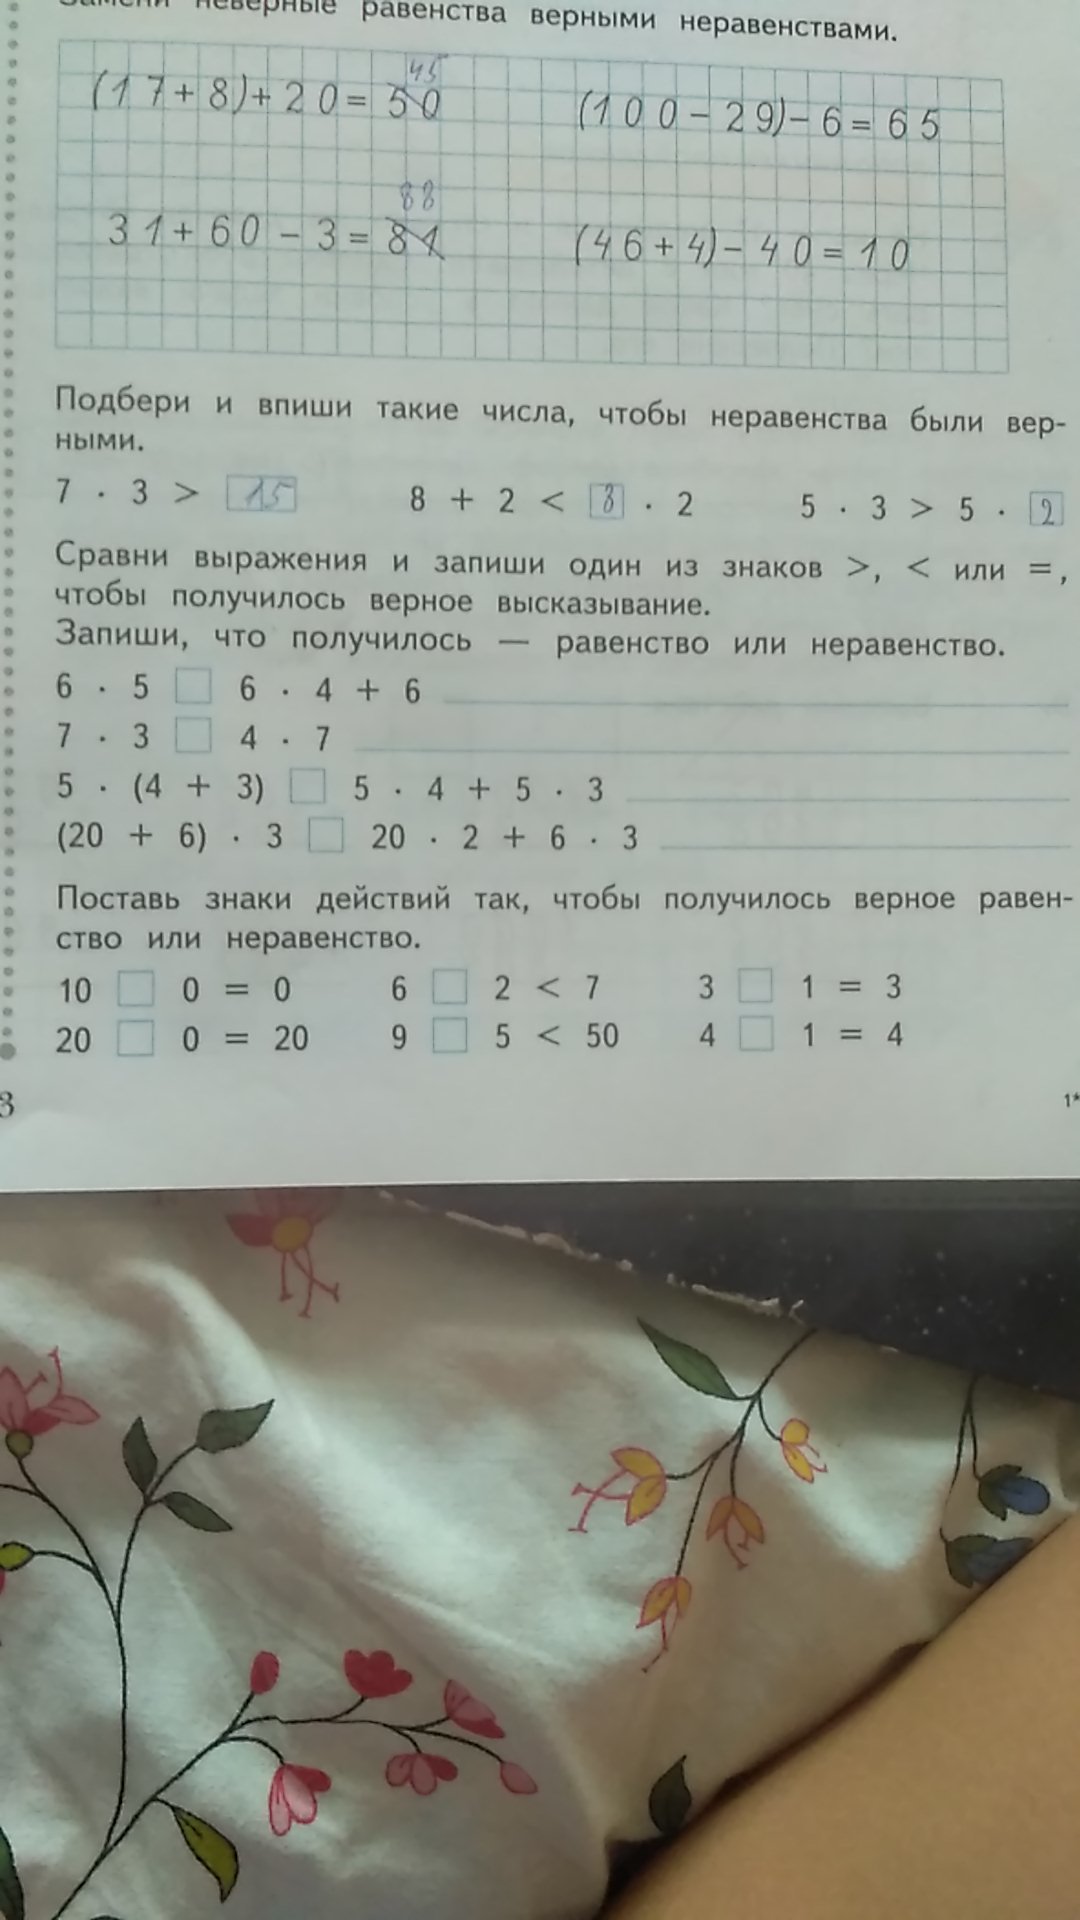 Замени неверные равенства верными неравенствами.
45
(17+8)+20=50 (100-29)-6=65
88
31+60-3=81 (46+4)-40=10
Подбери и впиши такие числа, чтобы неравенства были вер-
ными.
7 · 3 > 15 8 + 2 < 8 · 2 5 · 3 > 5 · 2
Сравни выражения и запиши один из знаков >, < или =,
чтобы получилось верное высказывание.
Запиши, что получилось — равенство или неравенство.
6 · 5 6 · 4 + 6
7 · 3 4 · 7
5 · (4 + 3) 5 · 4 + 5 · 3
(20 + 6) · 3 20 · 2 + 6 · 3
Поставь знаки действий так, чтобы получилось верное равен-
ство или неравенство.
10 0 = 0 6 2 < 7 3 1 = 3
20 0 = 20 9 5 < 50 4 1 = 4
3 1*